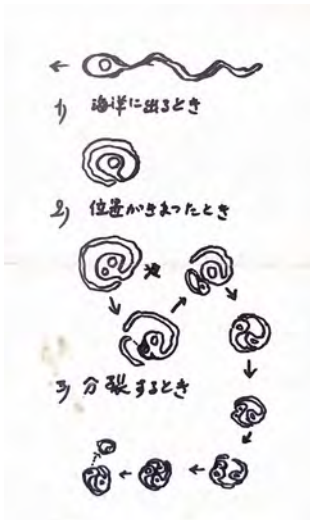 1) 海洋に出るとき
2) 位置がきまったとき
3) 分裂するとき